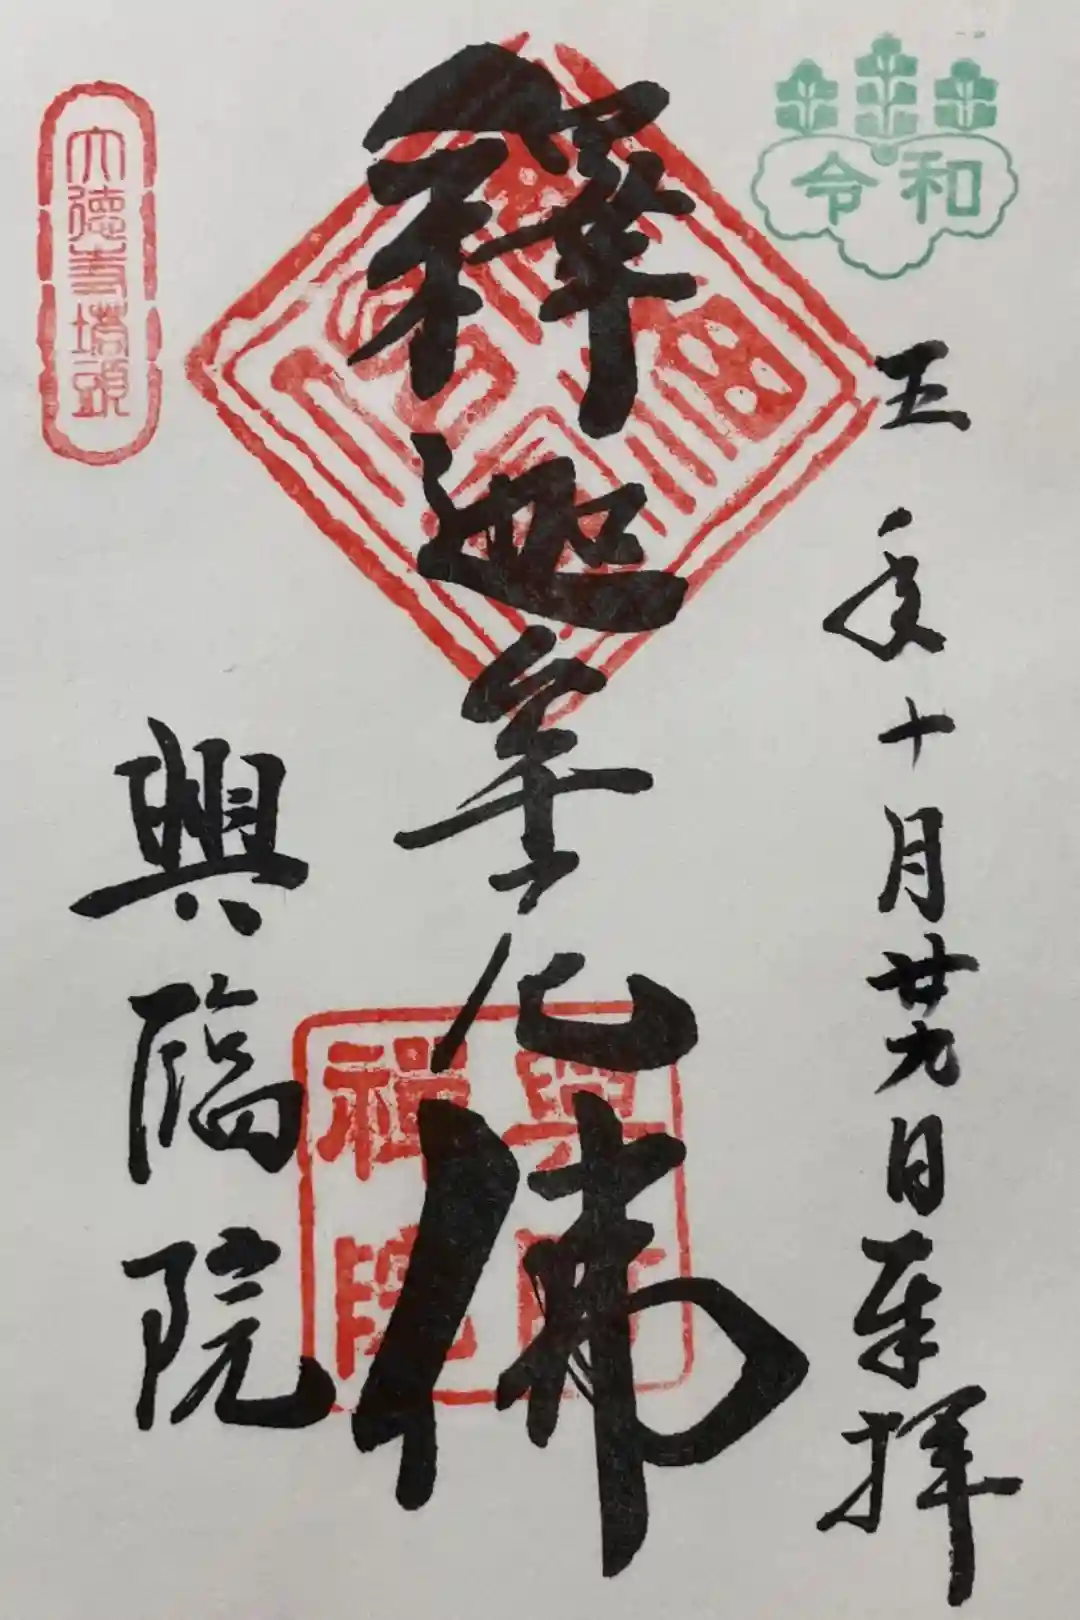 令和
五年十月廿九日奉拝
釋迦牟尼佛
興臨院
大徳寺塔頭